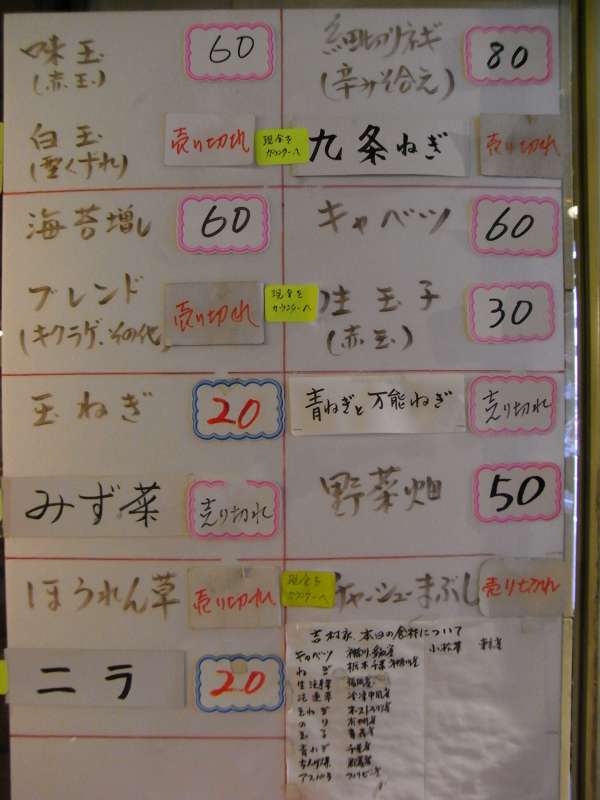 味玉 60
(赤玉)
白玉 売り切れ
(型くずれ)
現金を
カウンターへ
海苔増し 60
ブレンド 売り切れ
(キクラゲ、その他)
現金を
カウンターへ
玉ねぎ 20
みず菜 売り切れ
ほうれん草 売り切れ
現金を
カウンターへ
ニラ 20
細切りネギ 80
(辛みそ合え)
九条ねぎ 売り切れ
キャベツ 60
生玉子 30
(赤玉)
青ねぎと万能ねぎ 売り切れ
野菜畑 50
チャーシューまぶし 売り切れ
吉村家、本日の食材について
キャベツ
ねぎ 栃木 千葉
玉ねぎ
のり
玉子 青森産
青ねぎ 千葉産
小松菜